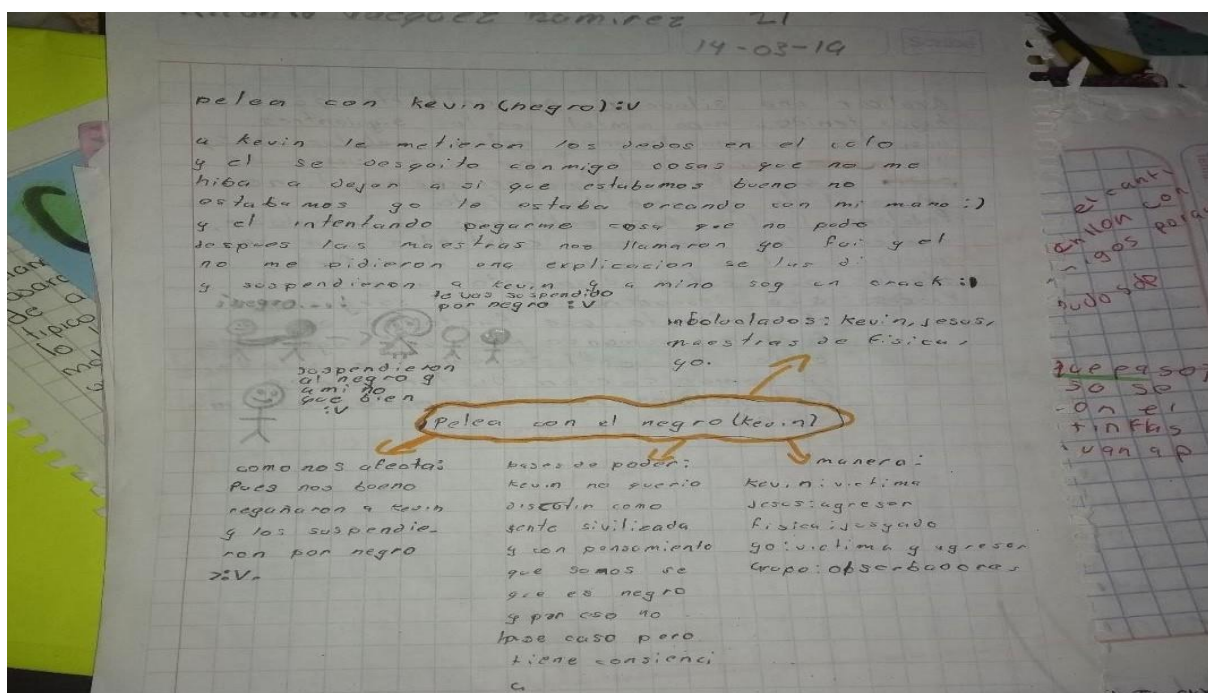 Vacquez Ramirez 21
14-03-19
pelea con kevin (negro) :V
a kevin le metieron los dedos en el culo
y el se desquito conmigo cosas que no me
hiba a dejan a si que estabamos bueno no
estabamos yo le estaba orcando con mi mano :)
y el intentando pegarme cosa que no pudo
despues las maestras nos llamaron yo fui y el
no me pidieron una explicacion se las di
y suspendieron a kevin y a mi no soy un crack :)
te vas suspendido
por negro :V
suspendieron
al negro y
a mi no
que bien
:V
mboluclados: kevin, jesus,
maestras de fisica,
yo.
Pelea con el negro (kevin)
como nos afecta:
Pues nos bueno
regañaron a kevin
y los suspendie-
ron por negro
>:V.
bases de poder:
kevin no querio
discutin como
gente sivilizada
y con pensamiento
que somos se
que es negro
y por eso no
hase caso pero
tiene consienci
a
manera:
kevin: victima
Jesus: agresor
fisica: jusgado
yo: victima y agresor
Grupo: obserbadores
el canti
que paso
so se
on el